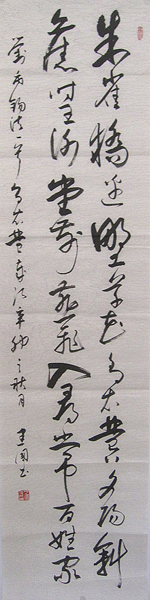 朱雀橋邊野草花烏衣巷口夕陽斜
舊時王謝堂前燕飛入尋常百姓家
劉禹錫詩一首烏衣巷歲次辛卯之秋月建國書